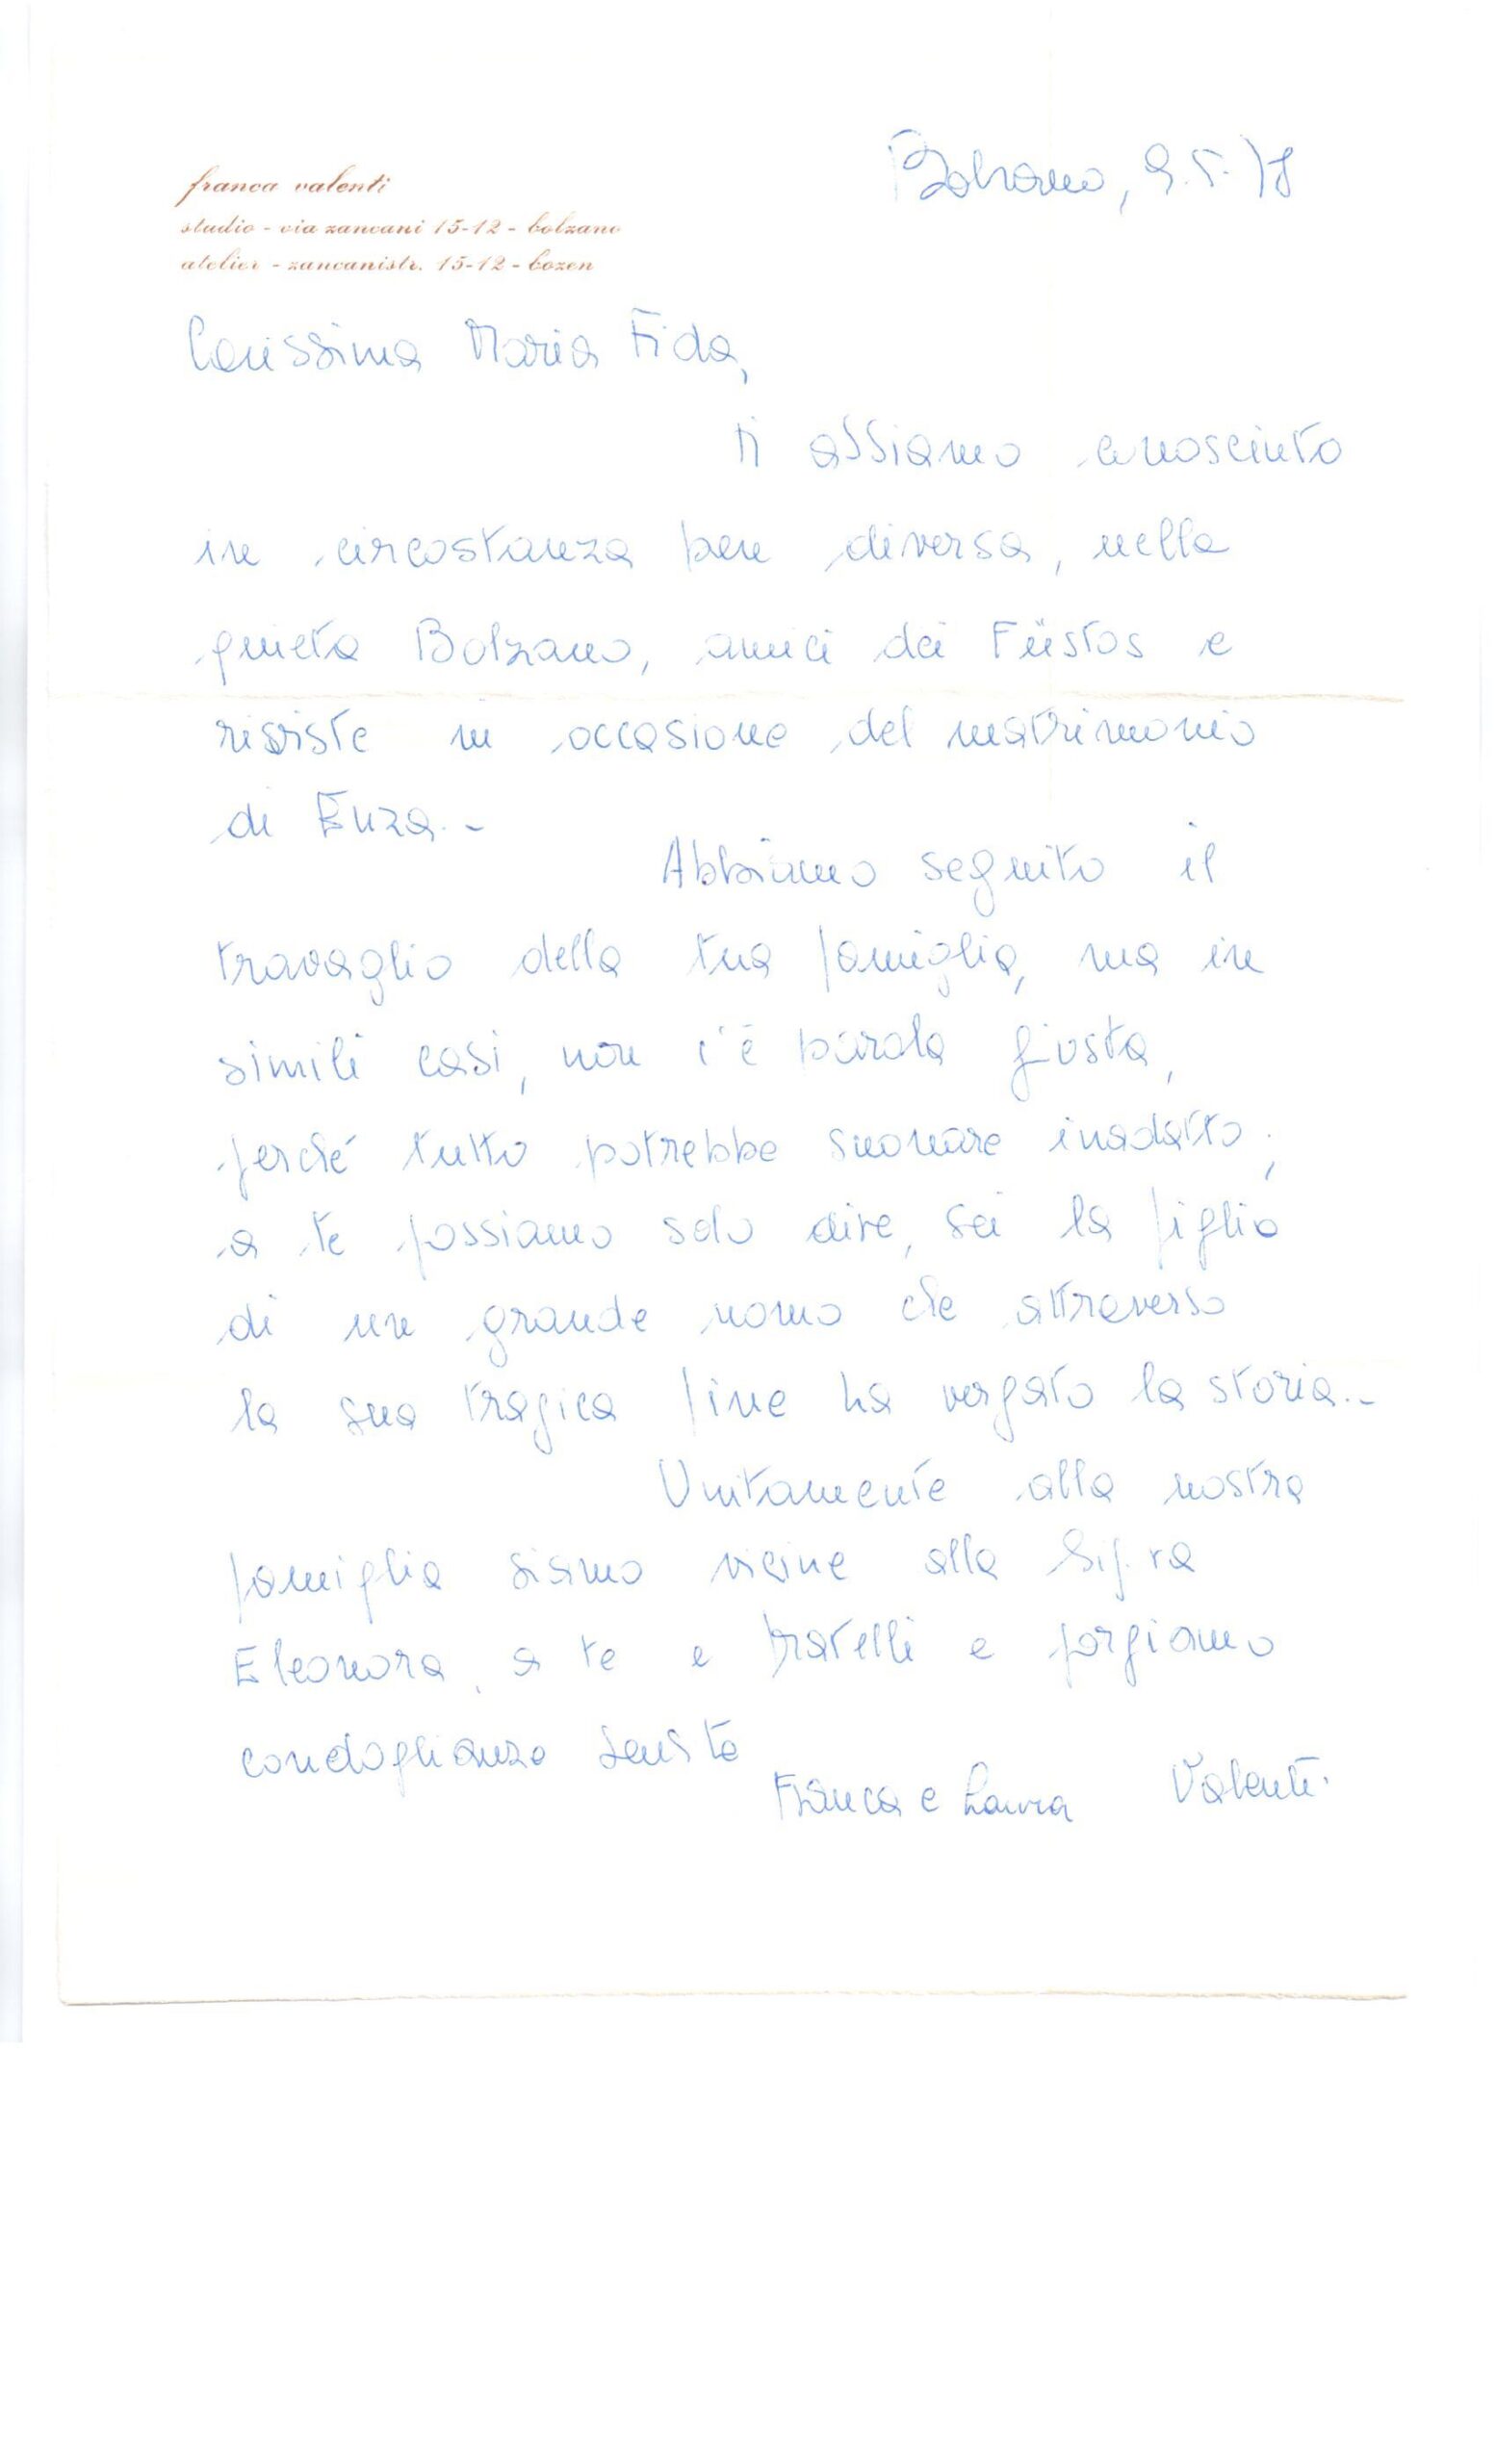 franca valenti
studio - via zancani 15-12 - bolzano
atelier - zancanistr. 15-12 - bozen
Bolzano, 9.5.78
Carissima Maria Fida,
ti abbiamo conosciuto
in circostanza ben diversa, nella
quieta Bolzano, amici dei Füstös e
riviste in occasione del matrimonio
di Enza.-
Abbiamo seguito il
travaglio della tua famiglia, ma in
simili casi, non c'è parola giusta,
perché tutto potrebbe suonare inadatto;
a te possiamo solo dire, sei la figlia
di un grande uomo che attraverso
la sua tragica fine ha vergato la storia.-
Unitamente alla nostra
famiglia siamo vicine alla Sig.ra
Eleonora, a te e fratelli e porgiamo
condoglianze sentite
Franca e Laura Valenti.